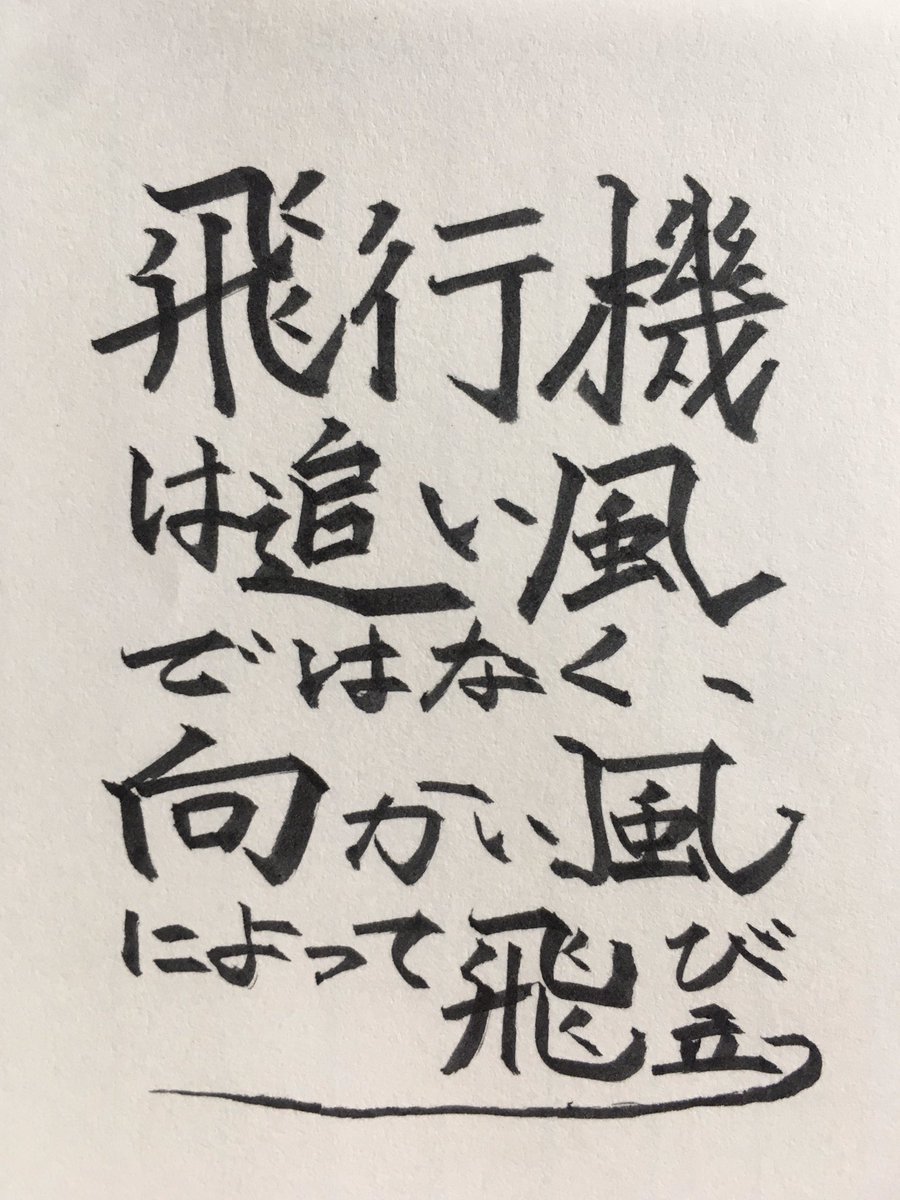 飛行機
は追い風
ではなく、
向かい風
によって飛び
立つ